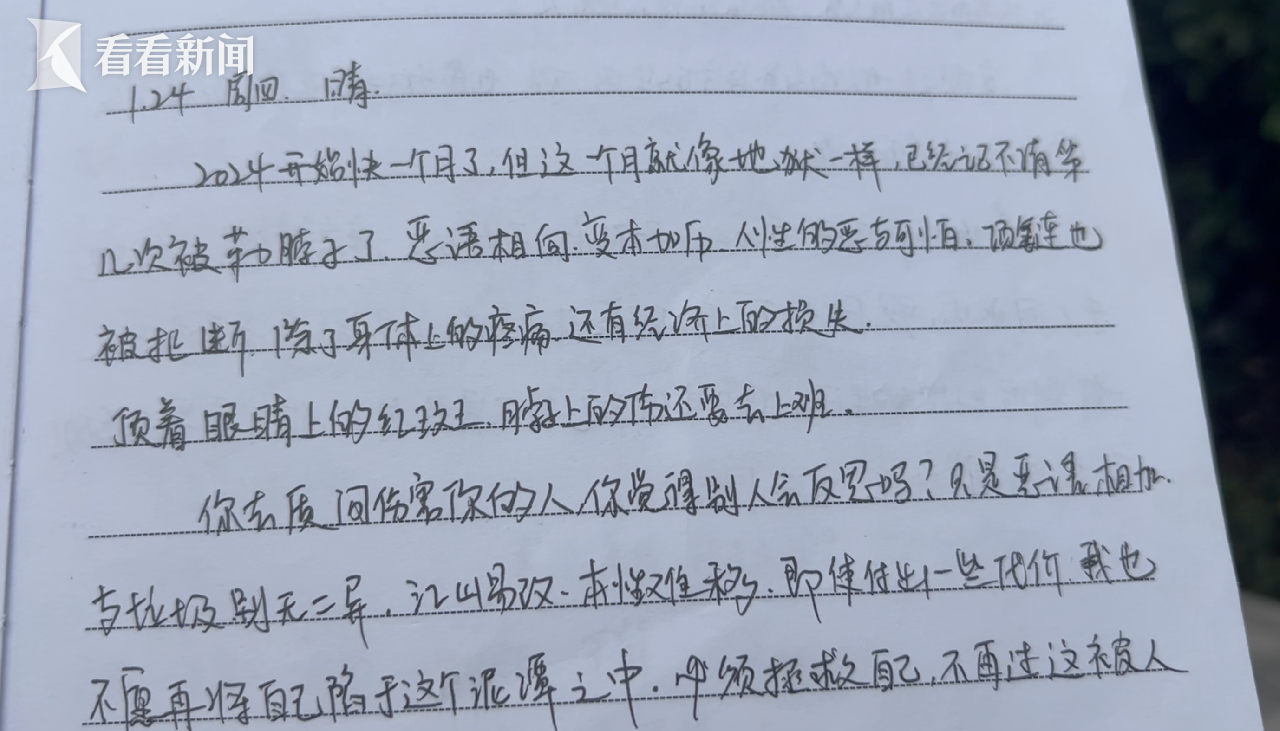 看看新闻
1.24 周四. 晴.
2024开始快一个月了,但这一个月就像地狱一样,已经记不清第
几次被勒脖子了、恶语相向、变本加厉 人性的恶与可怕、项链也
被扯断 除了身体上的疼痛 还有经济上的损失.
顶着眼睛上的红斑、脖子上的伤还要去上班.
你去质问伤害你的人,你觉得别人会反思吗?只是恶语相加.
与垃圾别无二异、江山易改.本性难移、即使付出一些代价 我也
不愿再将自己陷于这个泥潭之中.必须拯救自己,不再过这被人